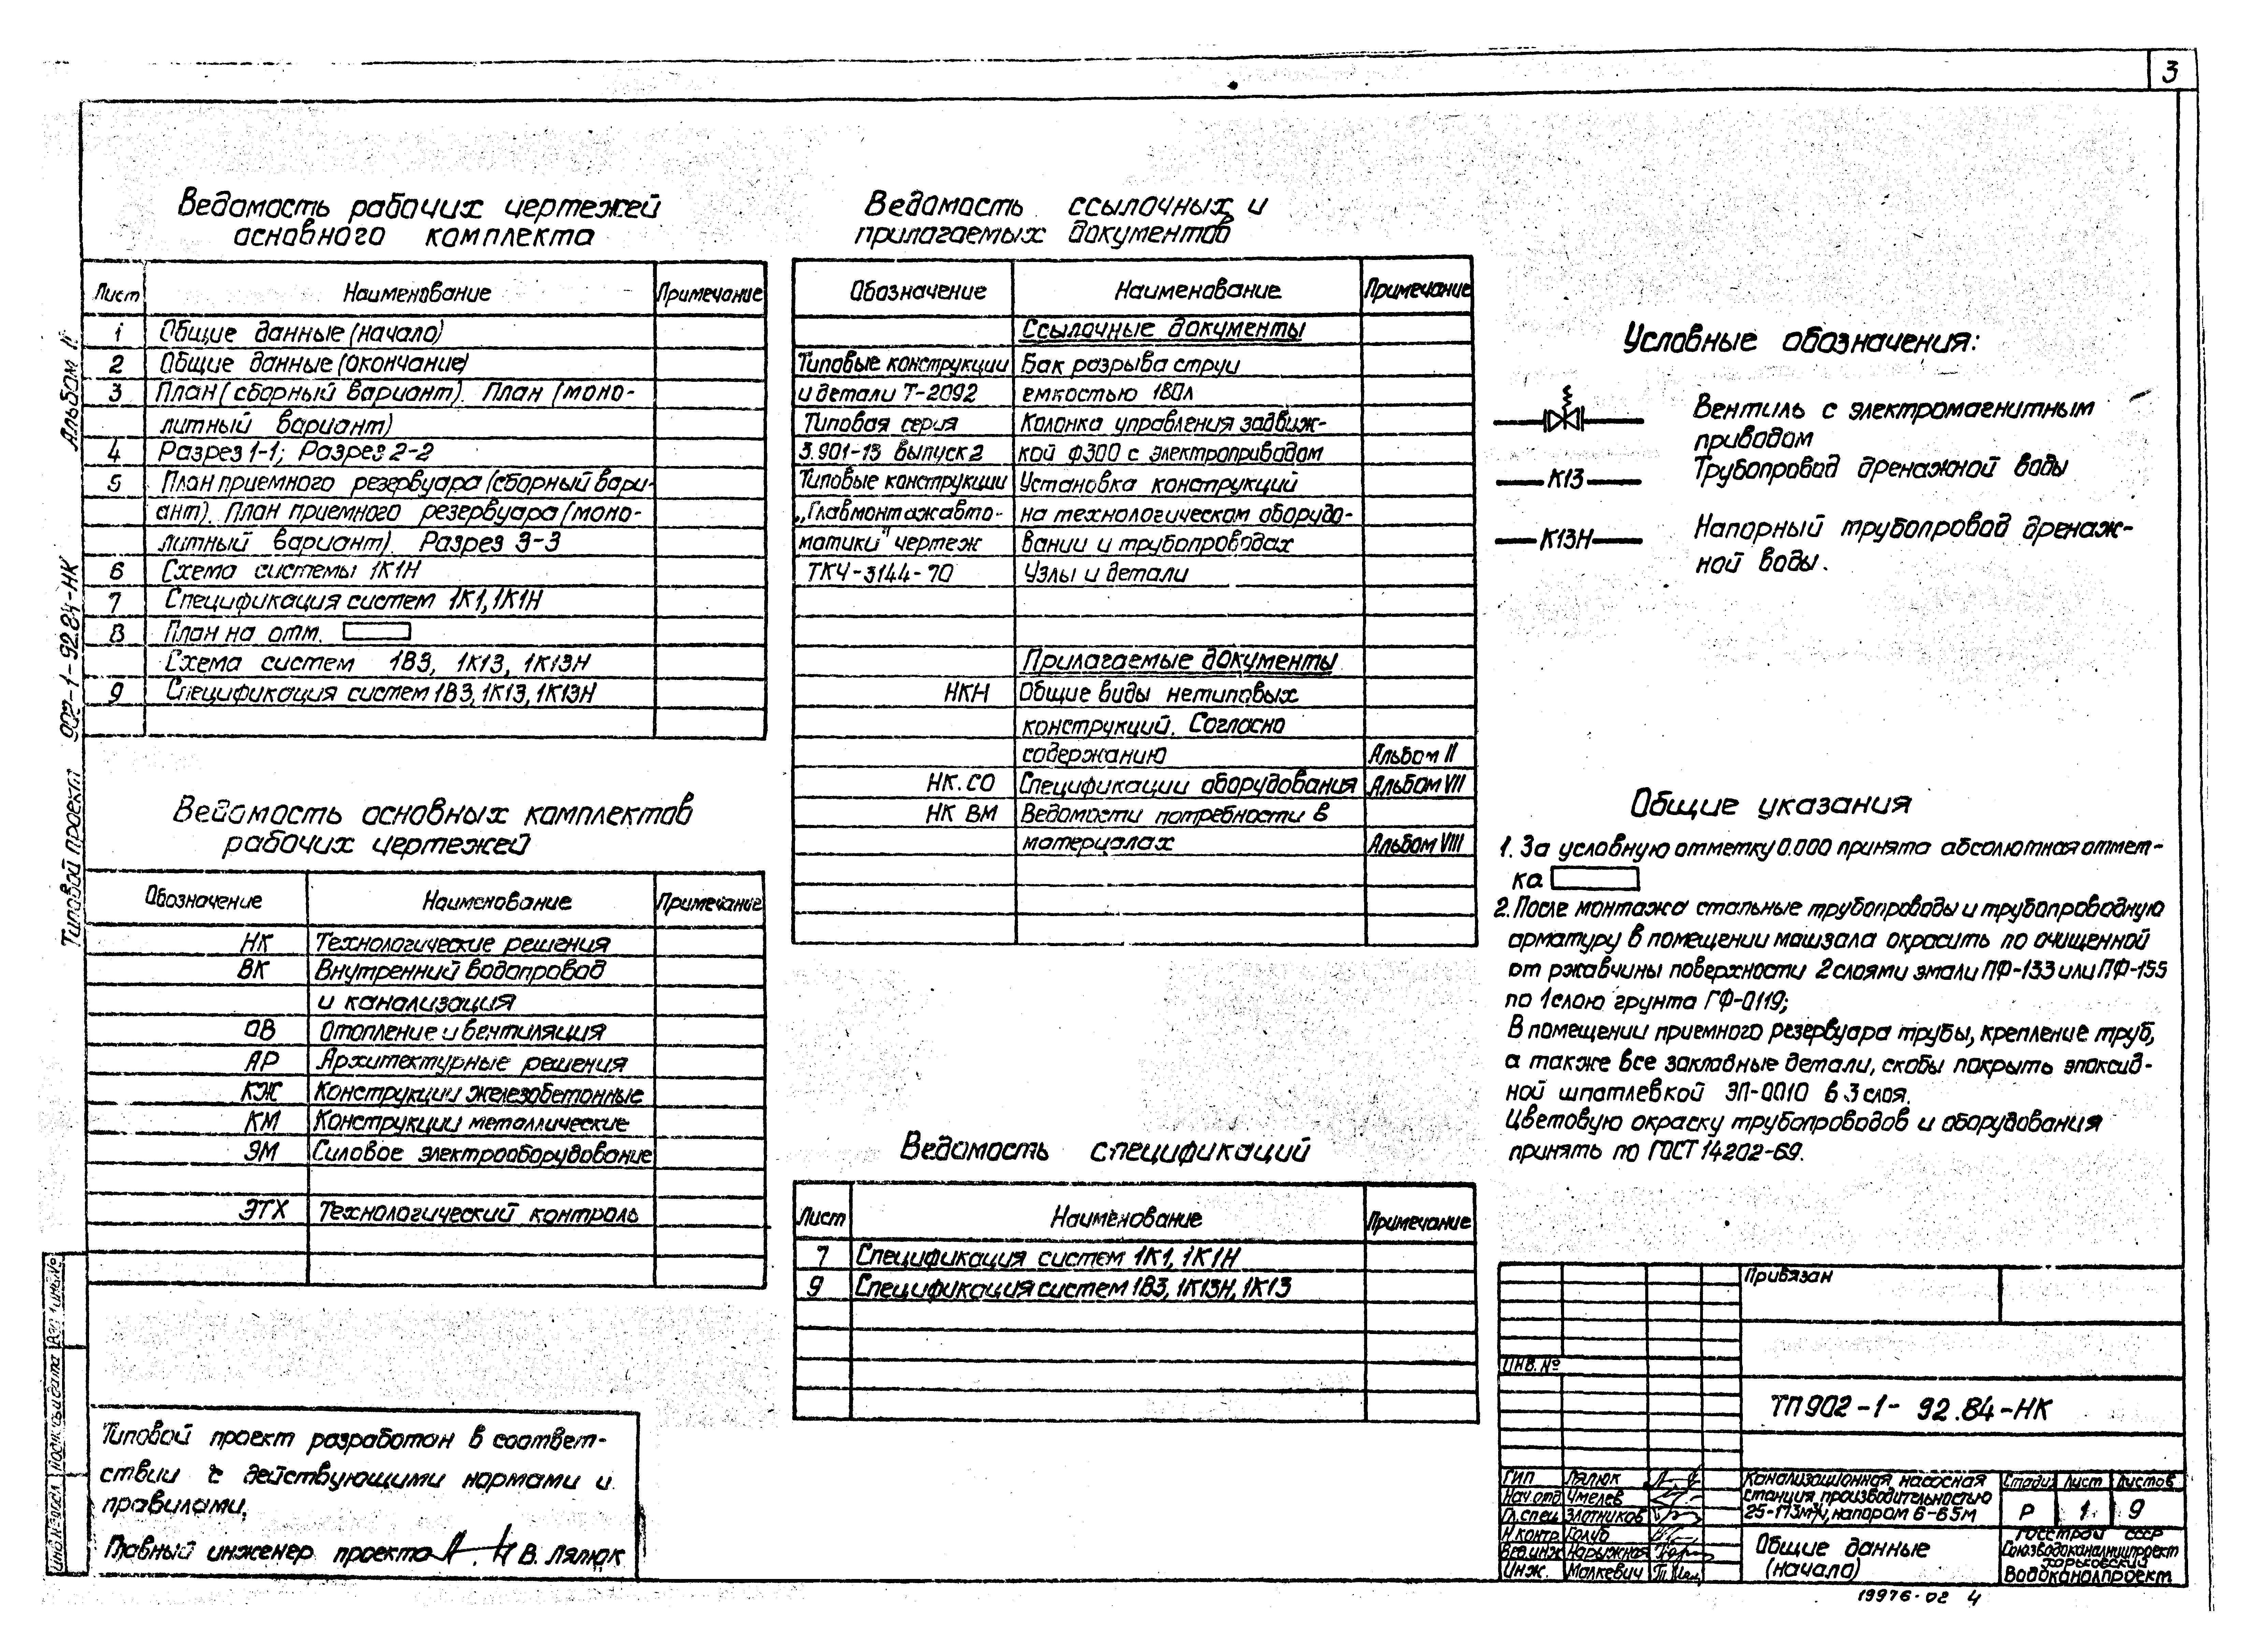 3
Ведомость рабочих чертежей
основного комплекта
Лист Наименование Примечание
1 Общие данные (начало)
2 Общие данные (окончание)
3 План (сборный вариант). План (моно-
литный вариант)
4 Разрез 1-1; Разрез 2-2
5 План приемного резервуара (сборный вари-
ант). План приемного резервуара (моно-
литный вариант). Разрез 3-3
6 Схема системы 1К1Н
7 Спецификация систем 1К1, 1К1Н
8 План на отм.
Схема систем 1В3, 1К13, 1К13Н
9 Спецификация систем 1В3, 1К13, 1К13Н
Ведомость основных комплектов
рабочих чертежей
Обозначение Наименование Примечание
НК Технологические решения
ВК Внутренний водопровод
и канализация
ОВ Отопление и вентиляция
АР Архитектурные решения
КЖ Конструкции железобетонные
КМ Конструкции металлические
ЭМ Силовое электрооборудование
ЭТХ Технологический контроль
Типовой проект разработан в соответ-
ствии с действующими нормами и
правилами,
Главный инженер проекта В. Лялюк
Ведомость ссылочных и
прилагаемых документов
Обозначение Наименование Примечание
Ссылочные документы
Типовые конструкции Бак разрыва струи
и детали Т-2092 емкостью 180л
Типовая серия Колонка управления задвиж-
3.901-13 выпуск 2 кой ф300 с электроприводом
Типовые конструкции Установка конструкций
„Главмонтажавто- на технологическом оборудо-
матики" чертеж вании и трубопроводах
ТКЧ-3144-70 Узлы и детали
Прилагаемые документы
НКН Общие виды нетиповых
конструкций. Согласно
содержанию Альбом II
НК.СО Спецификации оборудования Альбом VII
НК ВМ Ведомости потребности в
материалах Альбом VIII
Ведомость спецификаций
Лист Наименование Примечание
7 Спецификация систем 1К1, 1К1Н
9 Спецификация систем 1В3, 1К13Н, 1К13
Условные обозначения:
Вентиль с электромагнитным
приводом
К13 Трубопровод дренажной воды
К13Н Напорный трубопровод дренаж-
ной воды.
Общие указания
1. За условную отметку 0.000 принята абсолютная отмет-
ка
2. После монтажа стальные трубопроводы и трубопроводную
арматуру в помещении машзала окрасить по очищенной
от ржавчины поверхности 2 слоями эмали ПФ-133 или ПФ-155
по 1 слою грунта ГФ-0119;
В помещении приемного резервуара трубы, крепление труб,
а также все закладные детали, скобы покрыть эпоксид-
ной шпатлевкой ЭП-0010 в 3 слоя.
Цветовую окраску трубопроводов и оборудования
принять по ГОСТ 14202-69.
Привязан
Инв. №
ТП 902-1-92.84-НК
ГИП Лялюк
Нач.отд Чмелев
Гл.спец Злотников
Н.контр Голуб
Вед.инж Нарыжная
Инж. Малкевич
Канализационная насосная
станция производительностью
25-173м³/ч, напором 6-65м
Стадия Лист Листов
Р 1 9
Общие данные
(начало)
Госстрой СССР
Союзводоканалниипроект
Харьковский
Водоканалпроект
19976-02 4
Типовой проект 902-1-92.84-НК Альбом II
Инв.№подл Подпись и дата Взам.инв.№